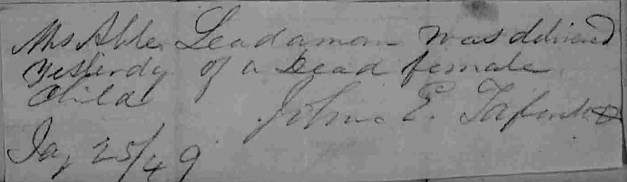 Mrs Abbe Leadamon was delivered
yesterdy of a Dead female
Child
John E.
Jay 25/49